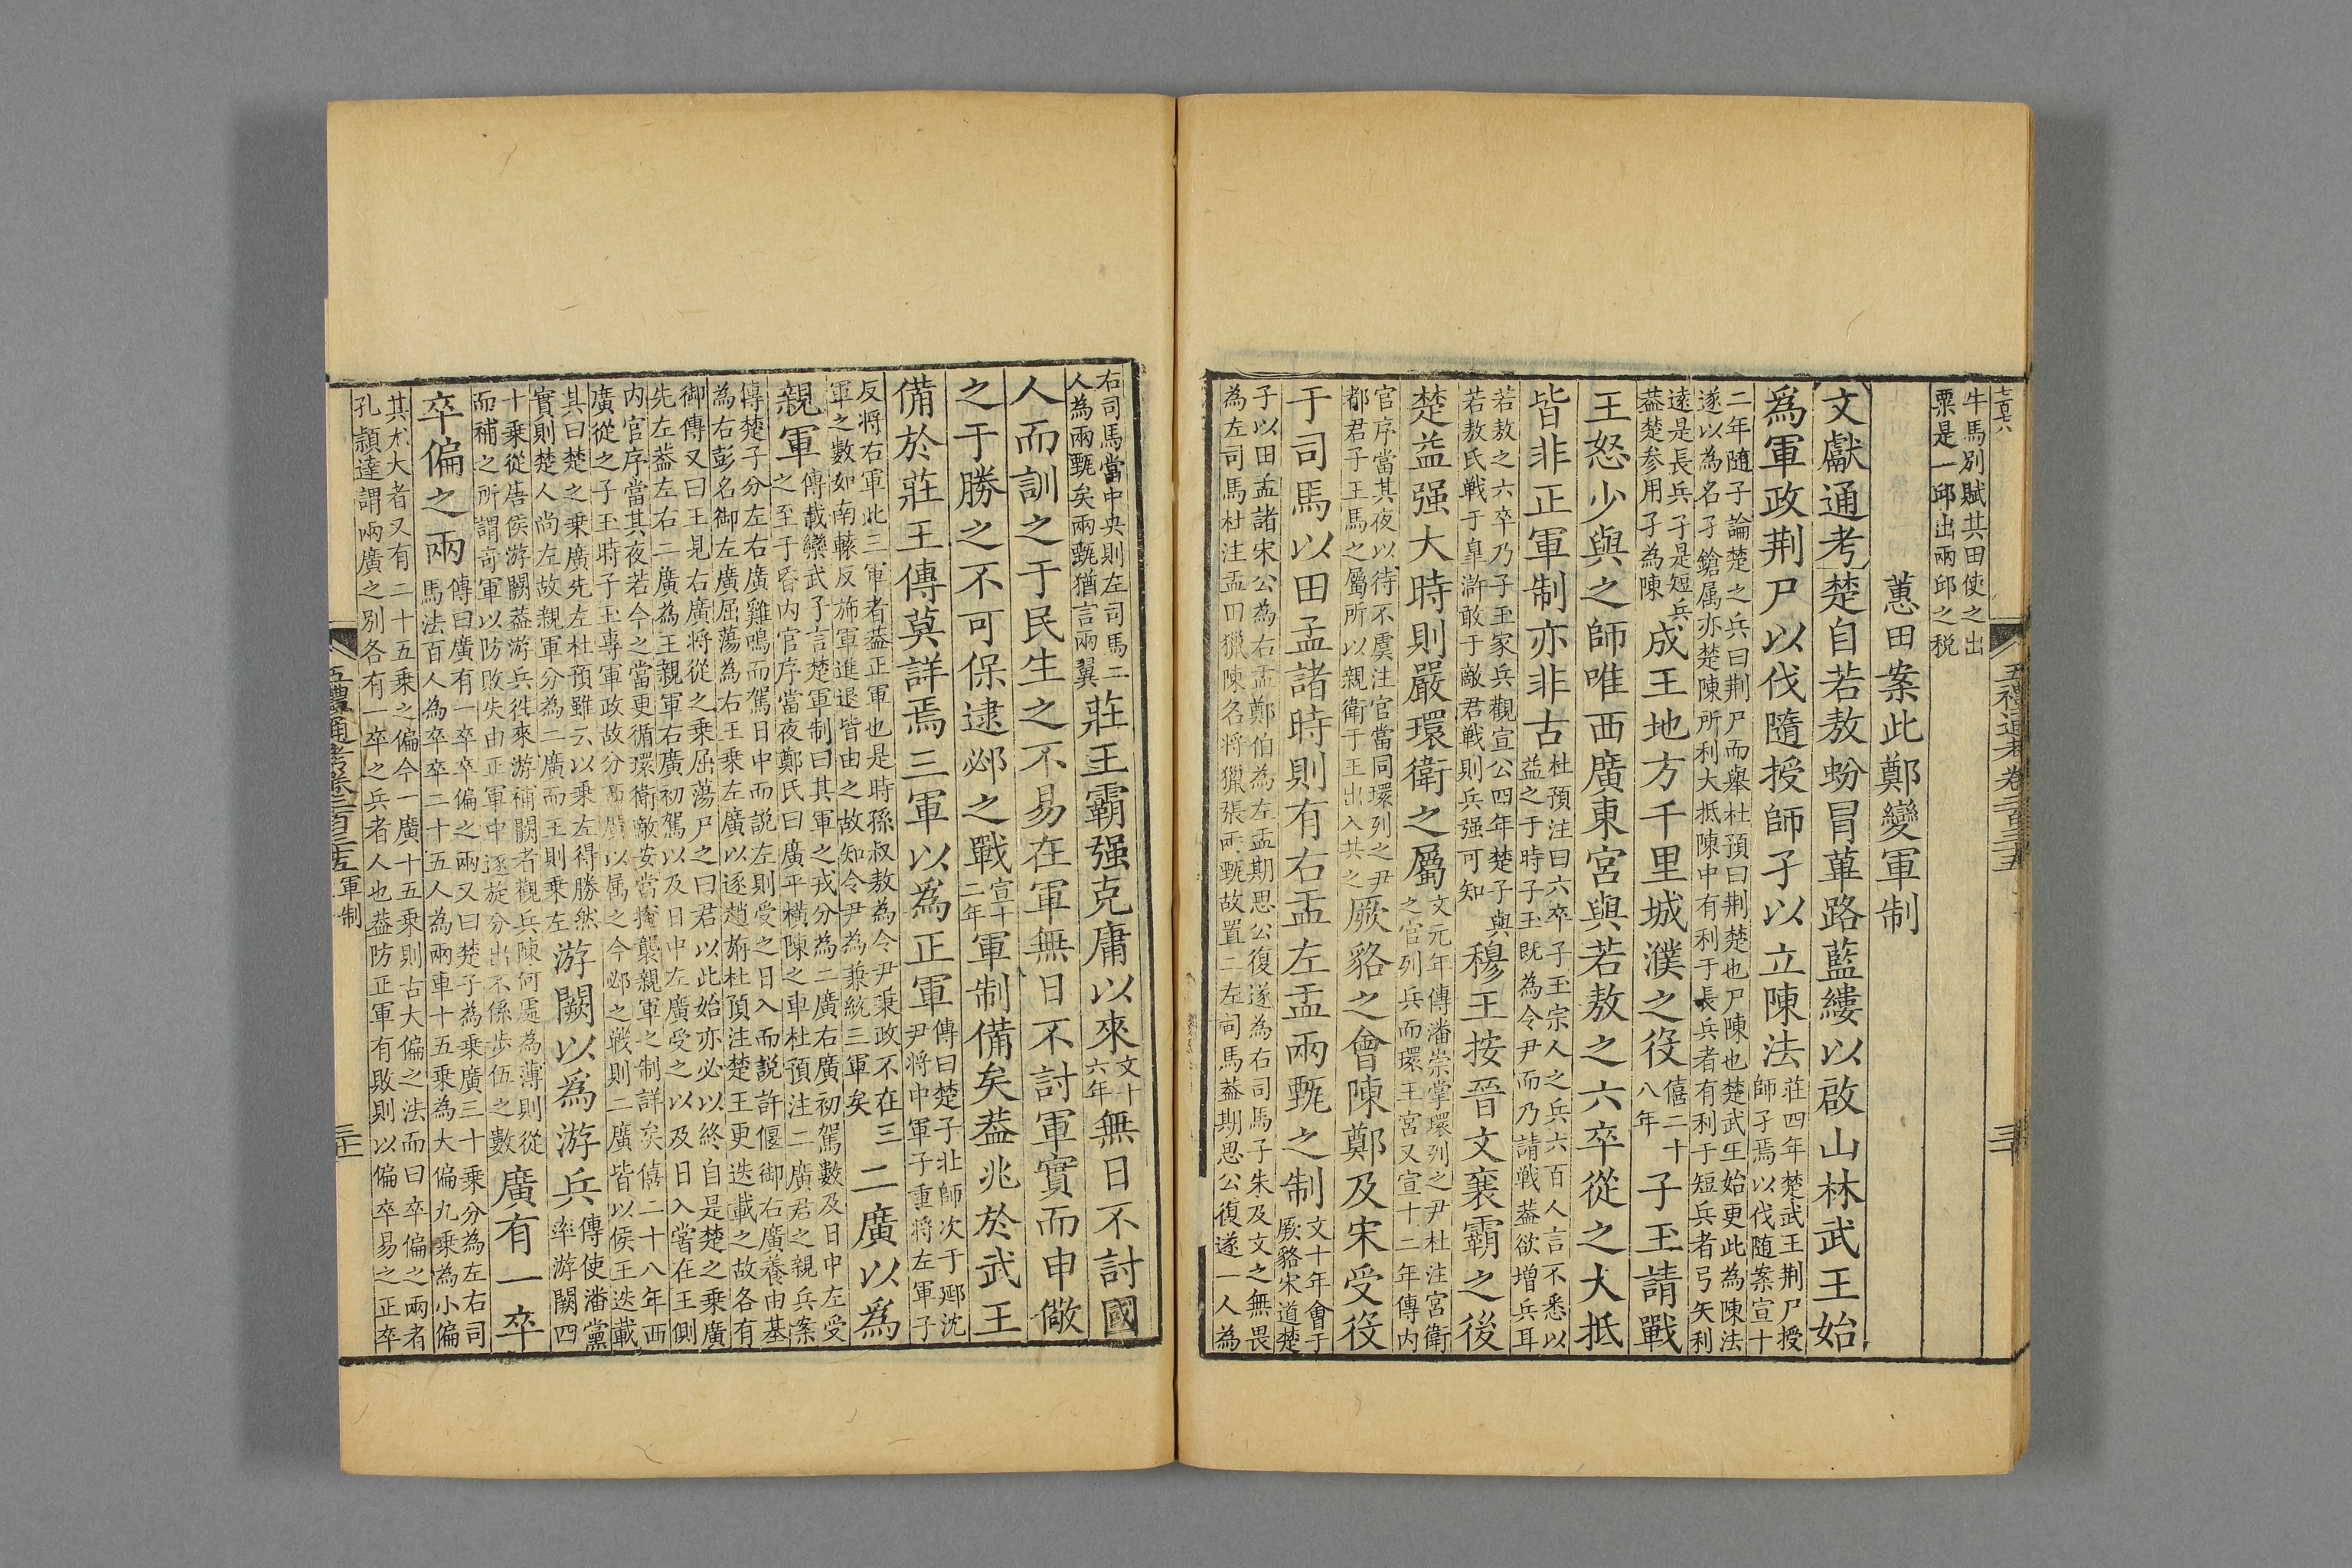 牛馬別賦其田使之出
粟是一邱出兩邱之税
蕙田案此鄭變軍制
文獻通考楚自若敖蚡冒篳路藍縷以啟山林武王始
為軍政荆尸以伐隨授師孑以立陳法莊四年楚武王荆尸授師孑焉以伐随案宣十
二年随子論楚之兵曰荆尸而舉杜預曰荆楚也尸陳也楚武王始更此為陳法
遂以為名孑鎗属亦楚陳所利大抵陳中有利于長兵者有利于短兵者弓矢利
遠是長兵孑是短兵
葢楚参用孑為陳
成王地方千里城濮之役僖二十八年子玉請戰
王怒少與之師唯西廣東宮與若敖之六卒從之大抵
皆非正軍制亦非古杜預注曰六卒子玉宗人之兵六百人言不悉以
益之于時子玉既為令尹而乃請戦葢欲增兵耳
若敖之六卒乃子玉家兵觀宣公四年楚子與
若敖氏戦于臯滸敢于敵君戦則兵强可知
穆王按晉文襄霸之後
楚益强大時則嚴環衛之屬文元年傳潘崇掌環列之尹杜注宮衛
之官列兵而環王宮又宣十二年傳内
官序當其夜以待不虞注官當同環列之尹
都君子王馬之屬所以親衛于王出入共之
厥貉之會陳鄭及宋受役
于司馬以田孟諸時則有右盂左盂兩甄之制文十年會于厥貉宋道楚
子以田孟諸宋公為右盂鄭伯為左盂期思公復遂為右司馬子朱及文之無畏
為左司馬杜注盂田獵陳名将獵張兩甄故置二左司馬葢期思公復遂一人為
五禮通考卷二百三十五
三十
右司馬當中央則左司馬二
人為兩甄矣兩甄猶言兩翼
莊王霸强克庸以來文十六年無日不討國
人而訓之于民生之不易在軍無日不討軍實而申儆
之于勝之不可保逮邲之戰宣十二年軍制備矣葢兆於武王
備於莊王傳莫詳焉三軍以為正軍傳曰楚子北師次于郔沈
尹将中軍子重将左軍子
反将右軍此三軍者葢正軍也是時孫叔敖為令尹秉政不在三
軍之數如南轅反斾軍進退皆由之故知令尹為兼統三軍矣
二廣以為
親軍傳載欒武子言楚軍制曰其軍之戎分為二廣右廣初駕數及日中左受
之至于昏内官序當夜鄭氏曰廣平橫陳之車杜預注二廣君之親兵案
傳楚子分左右廣雞鳴而駕日中而説左則受之日入而説許偃御右廣養由基
為右彭名御左廣屈蕩為右王乗左廣以逐趙旃杜預注楚王更迭載之故各有
御傳又曰王見右廣将從之乗屈蕩尸之曰君以此始亦必以終自是楚之乗廣
先左葢左右二廣為王親軍右廣初駕以及日中左廣受之以及日入嘗在王側
内官序當其夜若今之當更循環衛敵安當掩襲親軍之制詳矣僖二十八年西
廣從之子玉時子玉專軍政故分西廣以属之今邲之戰則二廣皆以侯王迭載
其曰楚之乗廣先左杜預雖云以乗左得勝然
實則楚人尚左故親軍分為二廣而王則乗左
游闕以為游兵傳使潘黨率游闕四
十乗從唐侯游闕葢游兵徃來游補闕者觀兵陳何處為薄則從
而補之所謂竒軍以防敗失由正軍中逐旋分出不係歩伍之數
廣有一卒
卒偏之兩傳曰廣有一卒卒偏之兩又曰楚子為乗廣三十乗分為左右司
馬法百人為卒卒二十五人為兩車十五乗為大偏九乗為小偏
其尤大者又有二十五乗之偏今一廣十五乗則古大偏之法而曰卒偏之兩者
孔頴達謂兩廣之別各有一卒之兵者人也葢防正軍有敗則以偏卒易之正卒
五禮通考卷二百三十五軍制
三十